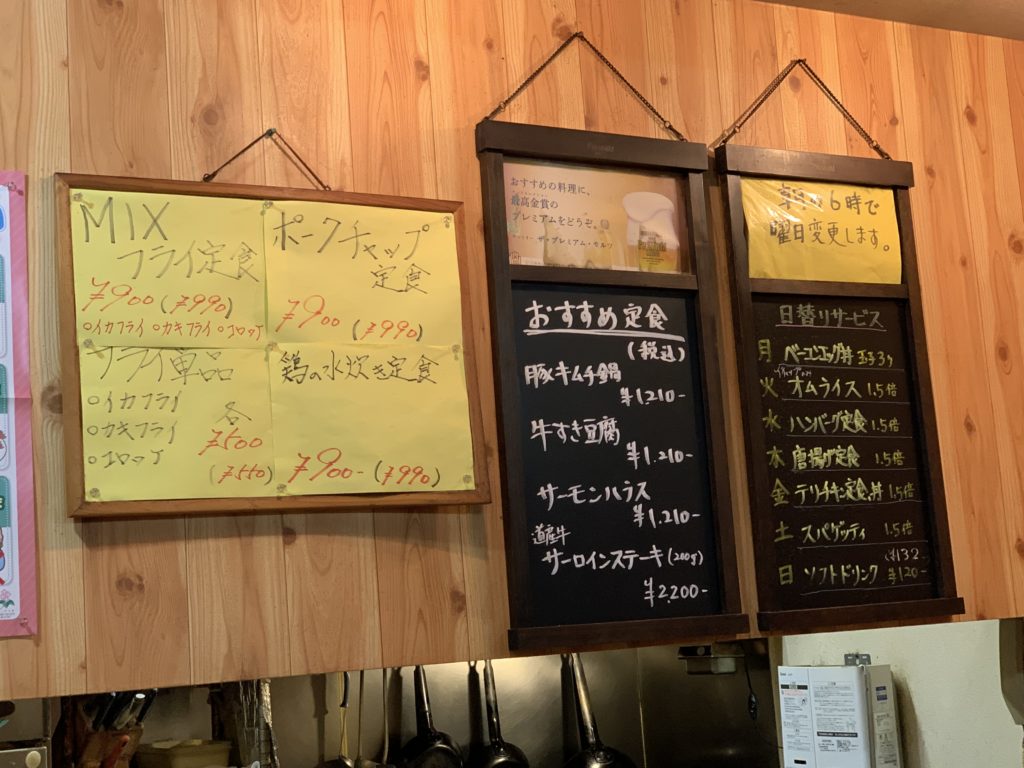 MIX
フライ定食
¥900 (¥990)
○イカフライ ○カキフライ ○コロッケ
ポークチャップ
定食
¥900 (¥990)
フライ単品
○イカフライ
○カキフライ
○コロッケ
各
¥500
(¥550)
鶏の水炊き定食
¥900- (¥990)
おすすめの料理に、
最高金賞の
プレミアムをどうぞ。
ザ・プレミアム・モルツ
おすすめ定食
(税込)
豚キムチ鍋
¥1,210-
牛すき豆腐
¥1,210-
サーモンハラス
¥1,210-
道産牛
サーロインステーキ(200g)
¥2,200-
6時で
曜日変更します。
日替りサービス
月 ベーコンエッグ丼 玉子3ヶ
火 オムライス 1.5倍
水 ハンバーグ定食 1.5倍
木 唐揚げ定食 1.5倍
金 テリチキン定食、丼 1.5倍
土 スパゲッティ 1.5倍
¥132
日 ソフトドリンク ¥120-